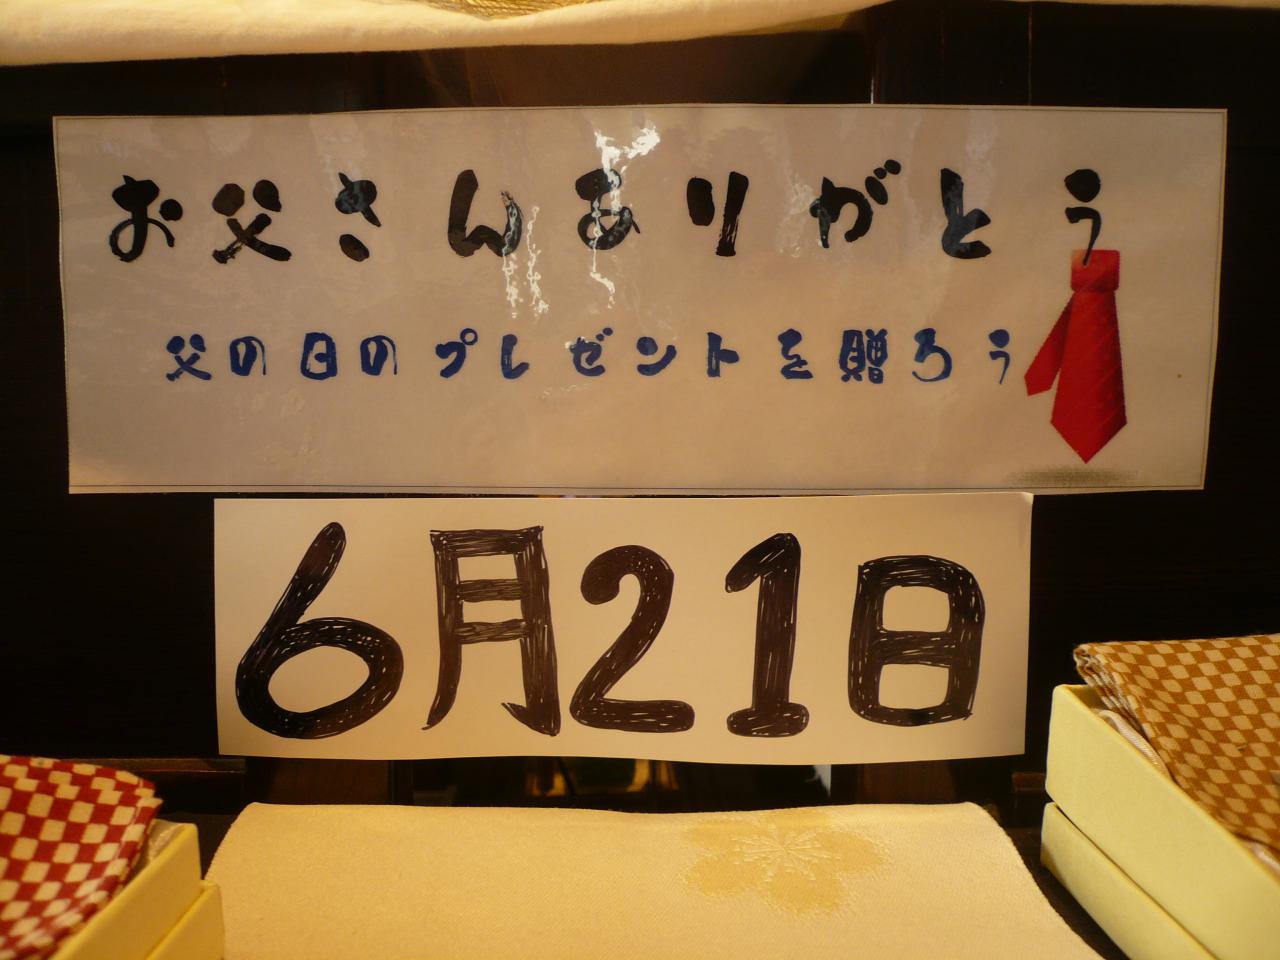 お父さんありがとう
父の日のプレゼントを贈ろう
6月21日